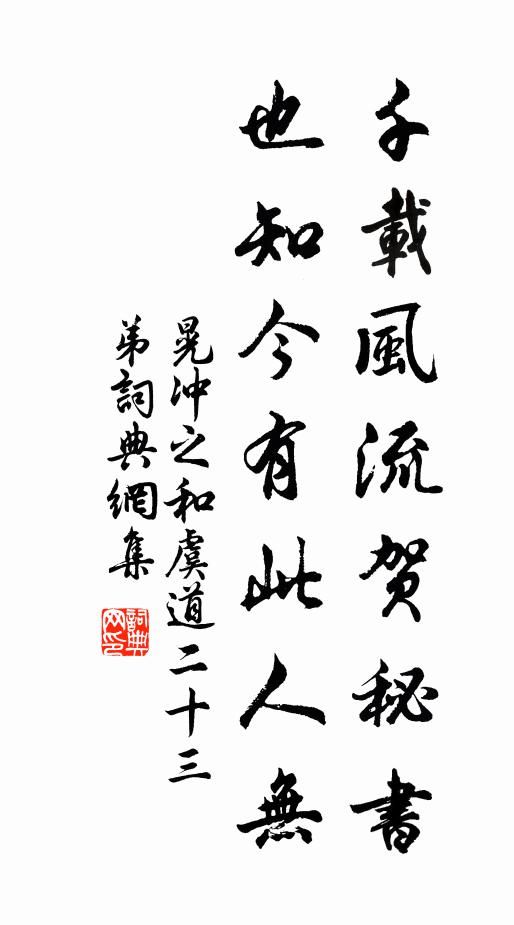 千載風流贺秘書
也知今有此人無
晁冲之和虞道二十三
弟詞典網集
詞典
网印